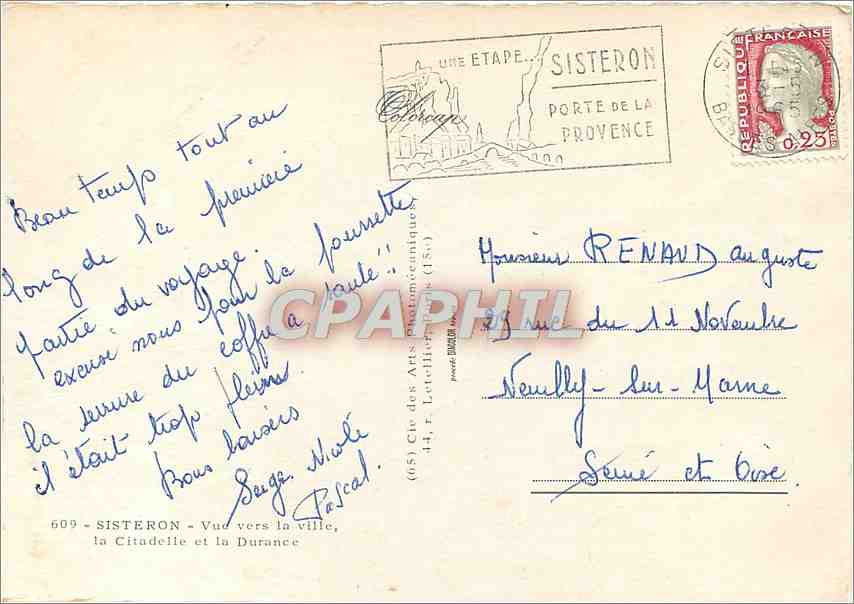 UNE ETAPE...
SISTERON
PORTE DE LA
PROVENCE
Colorcap
REPUBLIQUE FRANÇAISE
0,25
POSTES
Beau temps tout au
long de la première
partie du voyage.
excuse nous pour la poussette
la serrure du coffre a sauté !!
il était trop plein.
Bons baisers
Serge Nicole
Pascal.
Monsieur RENAUD Auguste
29 rue du 11 Novembre
Neuilly-Sur-Marne
Seine et Oise.
(05) Cie des Arts Photomécaniques
44, r. Letellier, Paris (15e)
procédé DIAGOLOR
CPAPHIL
609 - SISTERON - Vue vers la ville,
la Citadelle et la Durance